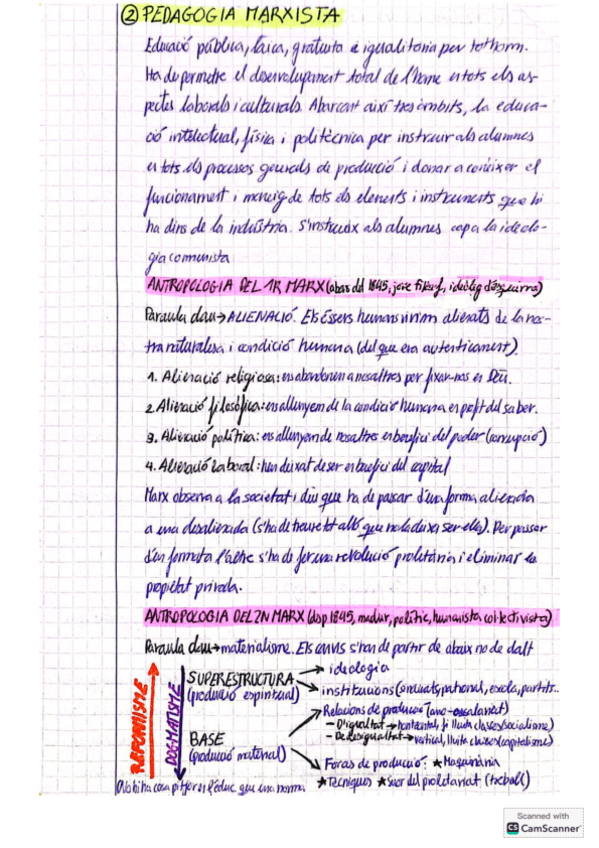 ② PEDAGOGIA MARXISTA
Educació pública, laica, gratuita e igualitaria per tothom.
Ha de permetre el desenvolupament total de l'home en tots els as-
pectes laborals i culturals. Abarcant així tres àmbits, la educa-
ció intelectual, física i politècnica per instruir als alumnes
en tots els processos generals de producció i donar a conèixer el
funcionament i maneig de tots els elements i instruments que hi
ha dins de la indústria. S'instrueix als alumnes cap a la ideolo-
gia comunista
ANTROPOLOGIA DEL 1R MARX (abans del 1845, jove filòsof, ideòleg d'esquerra)
Paraula clau→ALIENACIÓ. Els éssers humans vivim alienats de la nos-
tra naturalesa i condició humana (del que era autènticament).
1. Alienació religiosa: ens abandonem a nosaltres per fixar-nos en Déu.
2. Alienació filosòfica: ens allunyem de la condició humana en profit del saber.
3. Alienació política: ens allunyem de nosaltres en benefici del poder (corrupció)
4. Alienació laboral: han deixat de ser en benefici del capital
Marx observa a la societat i diu que ha de passar d'una forma alienada
a una desalienada (s'ha de treure tot allò que no la deixa ser ella). Per passar
d'un forma a l'altre s'ha de fer una revolució proletària i eliminar la
propietat privada.
ANTROPOLOGIA DEL 2N MARX (dsp 1845, madur, polític, humanista col·lectivista)
Paraula clau→materialisme. Els canvis s'han de partir de abaix no de dalt
REFORMISME
DOGMATISME
SUPERESTRUCTURA
(producció espiritual)
→ ideologia
→ institucions (sindicats, patronal, escola, partits..
BASE
(producció material)
Relacions de producció (amo-assalariat)
- D'igualtat → horitzontal, fi lluita classes (socialisme)
- De desigualtat → vertical, lluita classes (capitalisme)
Forces de producció: ★ Maquinària
★ Tècniques ★ Suor del proletariat (treball)
No hi ha cosa pitjor en l'educ. que una norma
Scanned with
CS CamScanner